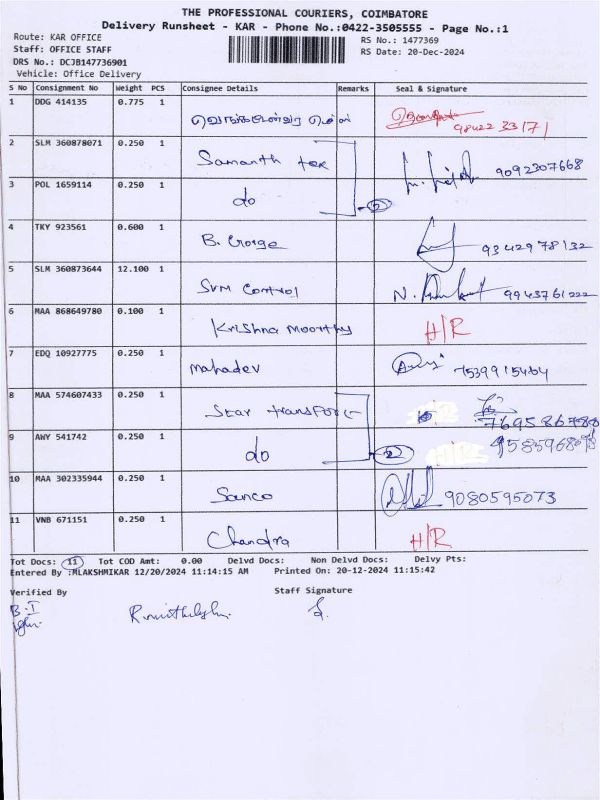 THE PROFESSIONAL COURIERS, COIMBATORE
Delivery Runsheet - KAR - Phone No.:0422-3505555 - Page No.:1
Route: KAR OFFICE
RS No.: 1477369
Staff: OFFICE STAFF
RS Date: 20-Dec-2024
DRS No.: DCJB147736901
Vehicle: Office Delivery
S No Consignment No Weight PCS Consignee Details Remarks Seal & Signature
1 DDG 414135 0.775 1 9842233171
2 SLM 360878071 0.250 1 Samanth tex 9092307668
3 POL 1659114 0.250 1 do 2
4 TKY 923561 0.600 1 B. George 9342978132
5 SLM 360873644 12.100 1 SVM Control 9943761222
6 MAA 868649780 0.100 1 Krishna Moorthy H/R
7 EDQ 10927775 0.250 1 Mahadev 7539915464
8 MAA 574607433 0.250 1 Star transPort
9 AWY 541742 0.250 1 do 2 H/R
10 MAA 302335944 0.250 1 Sanco 9080595073
11 VNB 671151 0.250 1 Chandra H/R
Tot Docs: 11 Tot COD Amt: 0.00 Delvd Docs: Non Delvd Docs: Delvy Pts:
Entered By :MLAKSHMIKAR 12/20/2024 11:14:15 AM Printed On: 20-12-2024 11:15:42
Verified By Staff Signature